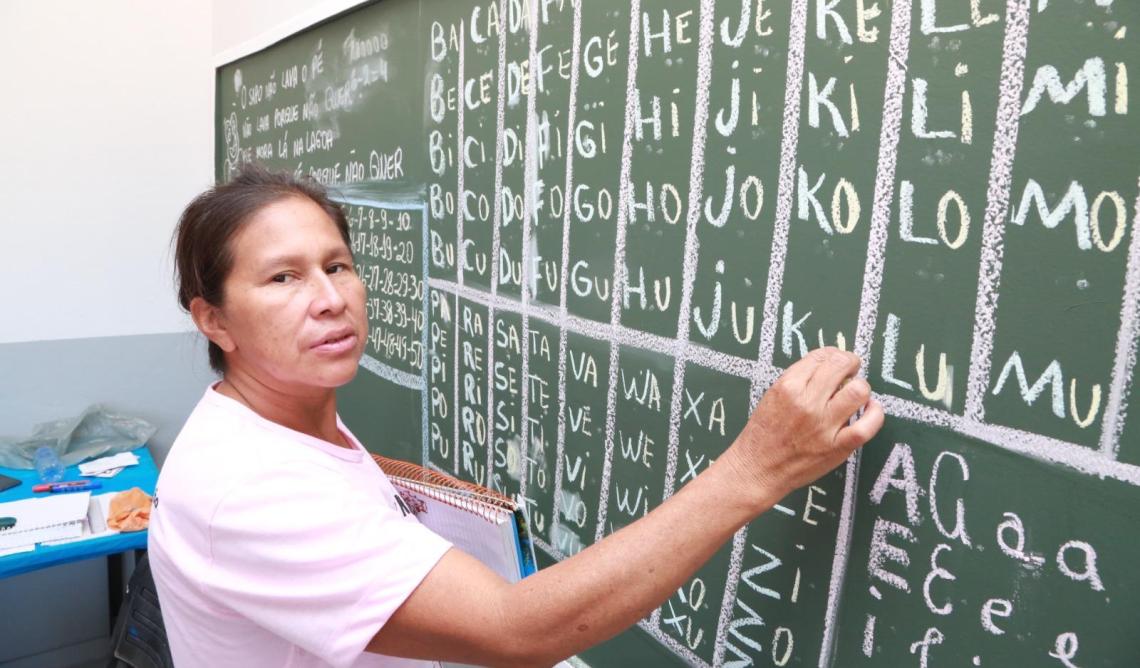 O SAPO NÃO LAVA O PÉ
NÃO LAVA PORQUE NÃO QUER
MORA LÁ NA LAGOA
PORQUE NÃO QUER
6-2=4
6-7-8-9-10
17-18-19-20
26-27-28-29-30
37-38-39-40
47-48-49-50
BA CA DA FA
BE CE DE FE GE HE JE KE LE
BI CI DI FI GI HI JI KI LI MI
BO CO DO FO GO HO JO KO LO MO
BU CU DU FU GU HU JU KU LU MU
PA RA SA TA VA WA XA
PE RE SE TE VE WE ZE
PI RI SI TI VI WI ZI
PO RO SO TO VO XO ZO
PU RU TU XU
A a a
E e e
i